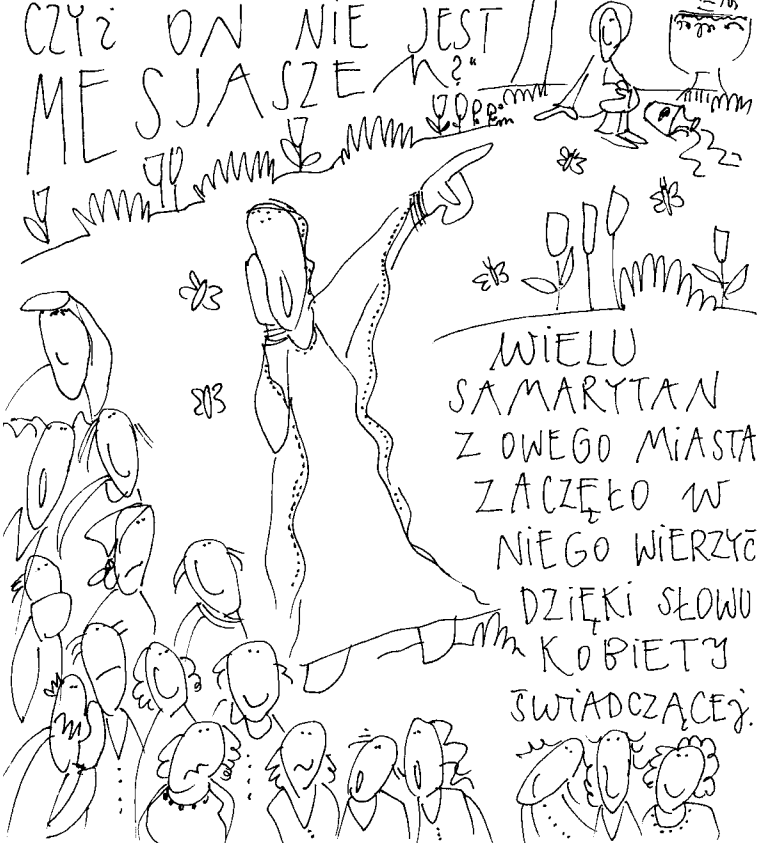 CZYŻ ON NIE JEST
MESJASZEM?"
WIELU
SAMARYTAN
Z OWEGO MIASTA
ZACZĘŁO W
NIEGO WIERZYĆ
DZIĘKI SŁOWU
KOBIETY
ŚWIADCZĄCEJ.